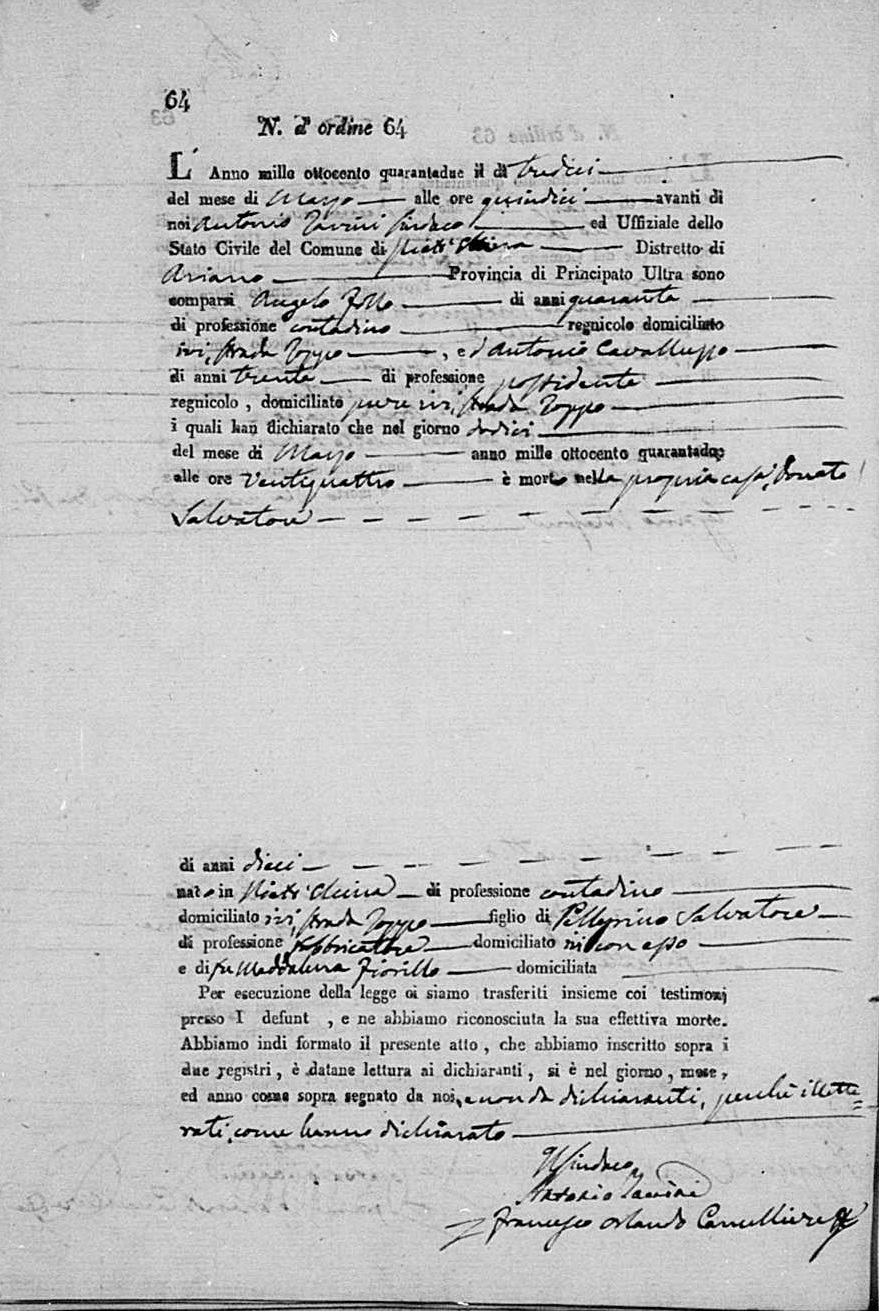 64
N. d' ordine 64
L' Anno mille ottocento quarantadue il dì tredici
del mese di Maggio alle ore quindici avanti di
noi Antonio Sindaco ed Uffiziale dello
Stato Civile del Comune di Distretto di
Ariano Provincia di Principato Ultra sono
comparsi Angelo Follo di anni quaranta
di professione contadino regnicolo domiciliato
ivi, strada Zoppo, ed Antonio Cavalluzzo
di anni trenta di professione possidente
regnicolo, domiciliato pure ivi, strada Zoppo
i quali han dichiarato che nel giorno dodici
del mese di Maggio anno mille ottocento quarantadue
alle ore ventiquattro è morto nella propria casa, Donato
Salvatore
di anni dieci
nato in di professione contadino
domiciliato ivi, strada Zoppo figlio di Pellegrino Salvatore
di professione fabbricatore domiciliato ivi con esso
e di fu Maddalena Fiorillo domiciliata
Per esecuzione della legge ci siamo trasferiti insieme coi testimonj
presso I defunt , e ne abbiamo riconosciuta la sua effettiva morte.
Abbiamo indi formato il presente atto, che abbiamo inscritto sopra i
due registri, è datane lettura ai dichiaranti, si è nel giorno, mese,
ed anno come sopra segnato da noi, e non da dichiaranti, perchè illette=
rati, come hanno dichiarato
Il Sindaco
Antonio
Francesco Orlando Cancelliere